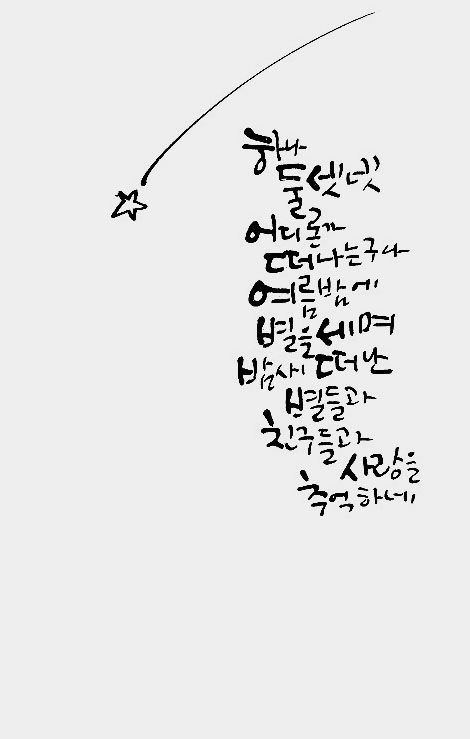 하나
둘 셋 넷
어디론가
떠나는구나
여름밤에
별을 세며
밤사이 떠난
별들과
친구들과
사랑을
추억하네